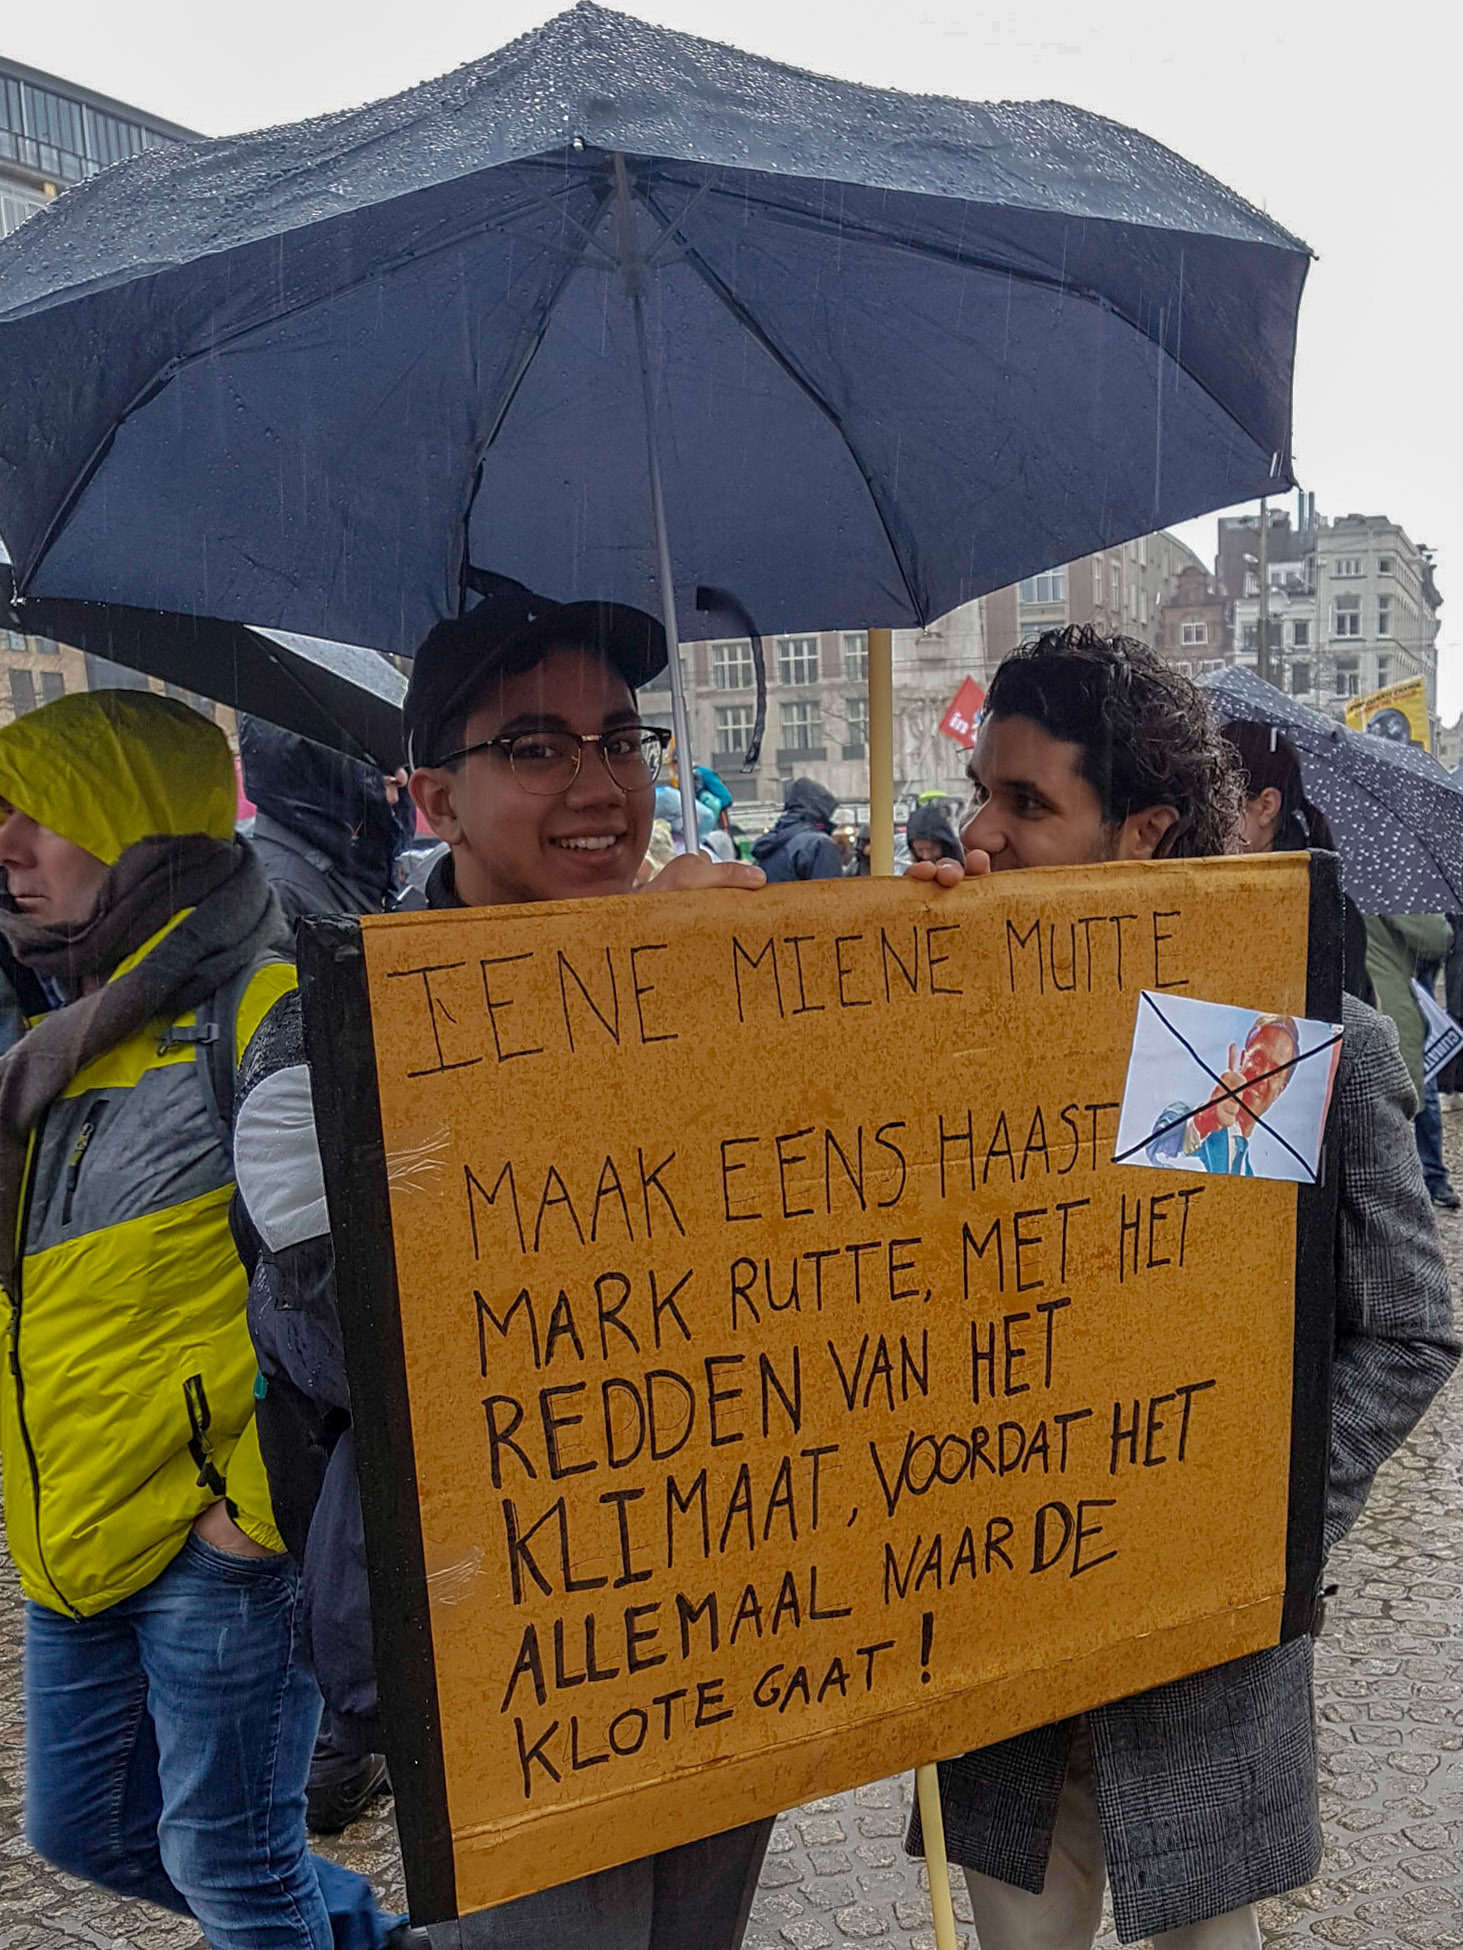 IENE MIENE MUTTE
MAAK EENS HAAST
MARK RUTTE, MET HET
REDDEN VAN HET
KLIMAAT, VOORDAT HET
ALLEMAAL NAAR DE
KLOTE GAAT!
in